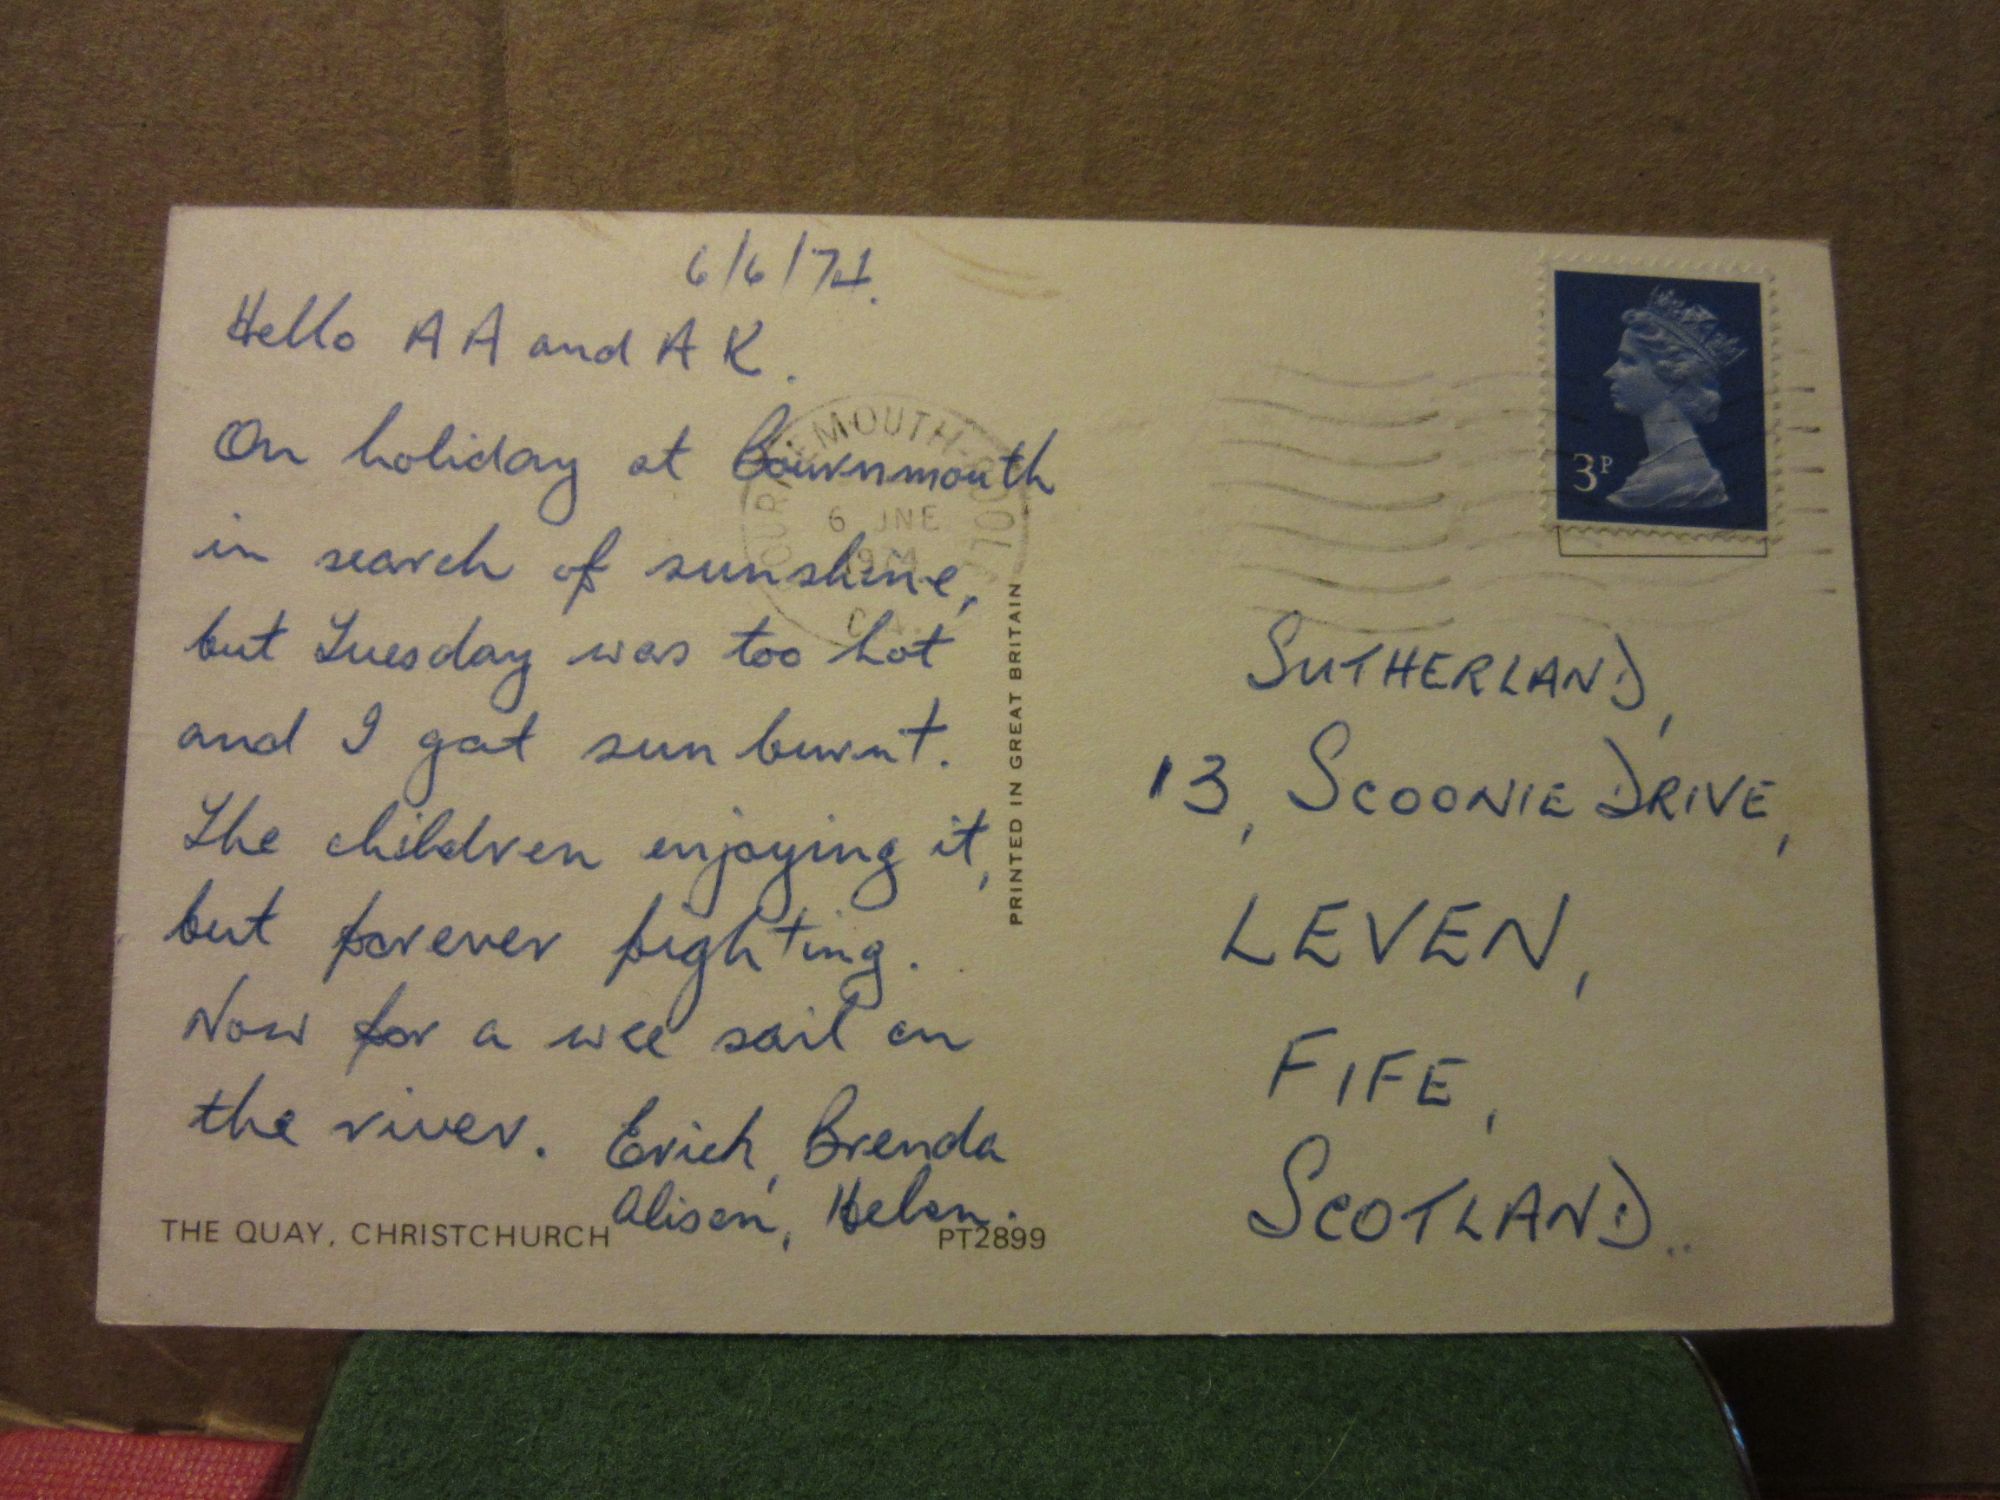 6/6/74.
Hello A A and A K.
On holiday at Bournmouth
in search of sunshine,
but Tuesday was too hot
and I got sun burnt.
The children enjoying it,
but forever fighting.
Now for a wee sail on
the river. Erich, Brenda
Alison, Helen.
THE QUAY, CHRISTCHURCH PT2899
PRINTED IN GREAT BRITAIN
BOURNEMOUTH
6 JNE
1974
3P
SUTHERLAND,
13, SCOONIE DRIVE,
LEVEN,
FIFE,
SCOTLAND..